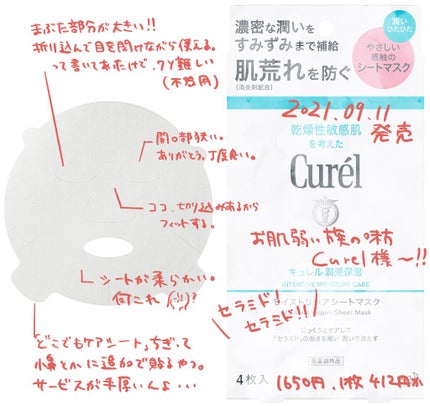 まぶた部分が大きい!!
折り込んで目を開けながら使える。
って書いてあたけで、クソ難しい
(不器用)
間の部狭い。
ありがとう、丁度良い。
ココ、切り込みあるから
フィットする。
シートが柔らかい。
何これ
「どこでもケアシート」ちぎって
小鼻とかに追加で貼るやつ。
サービスが手厚いんよ…
濃密な潤いを
すみずみまで補給
肌荒れを防ぐ
(消炎剤配合)
潤い
ひたひた
やさしい
感触の
シートマスク
2021.09.11
発売
乾燥性敏感肌
を考えた
Curél
お肌弱い族の味方
Curel様〜!!
キュレル 潤浸保湿
INTENSIVE MOISTURE CARE
モイストリペアシートマスク
Sheet Mask
セラミド!
セラミド!!
じっくりとケアして
「セラミド」の働きを補い 潤いで満たす
医薬部外品
4枚入
1650円、1枚412円